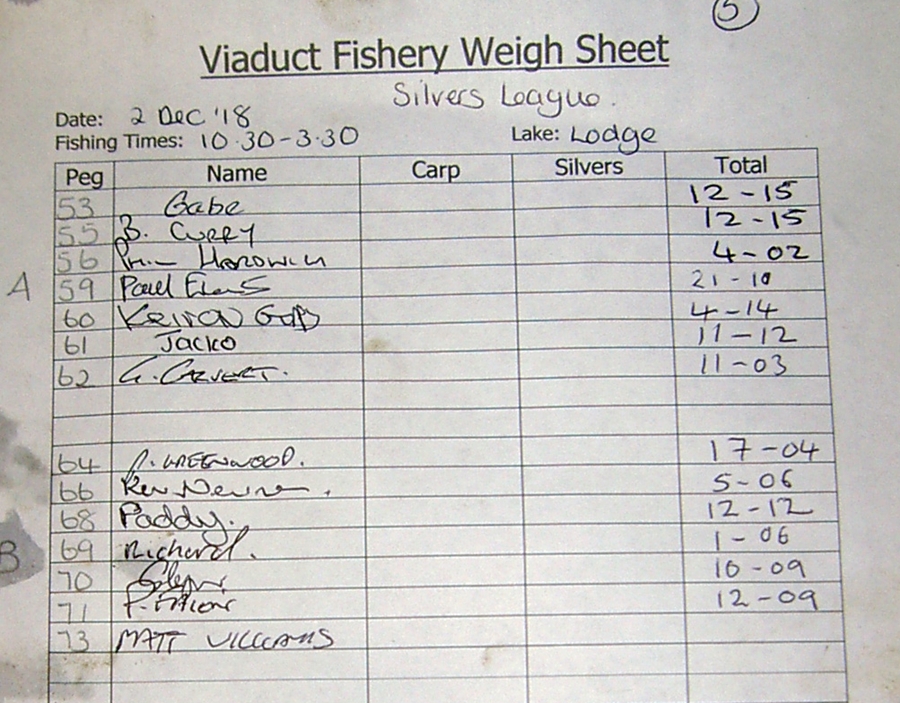 5
Viaduct Fishery Weigh Sheet
Silvers League.
Date: 2 Dec '18
Fishing Times: 10.30-3.30 Lake: Lodge
Peg Name Carp Silvers Total
53 Gabe 12-15
55 B. CURRY 12-15
56 4-02
A 59 Paul 21-10
60 4-14
61 Jacko 11-12
62 11-03
64 GREENWOOD. 17-04
66 Kev 5-06
68 Paddy. 12-12
B 69 Richard. 1-06
70 10-09
71 12-09
73 MATT WILLIAMS